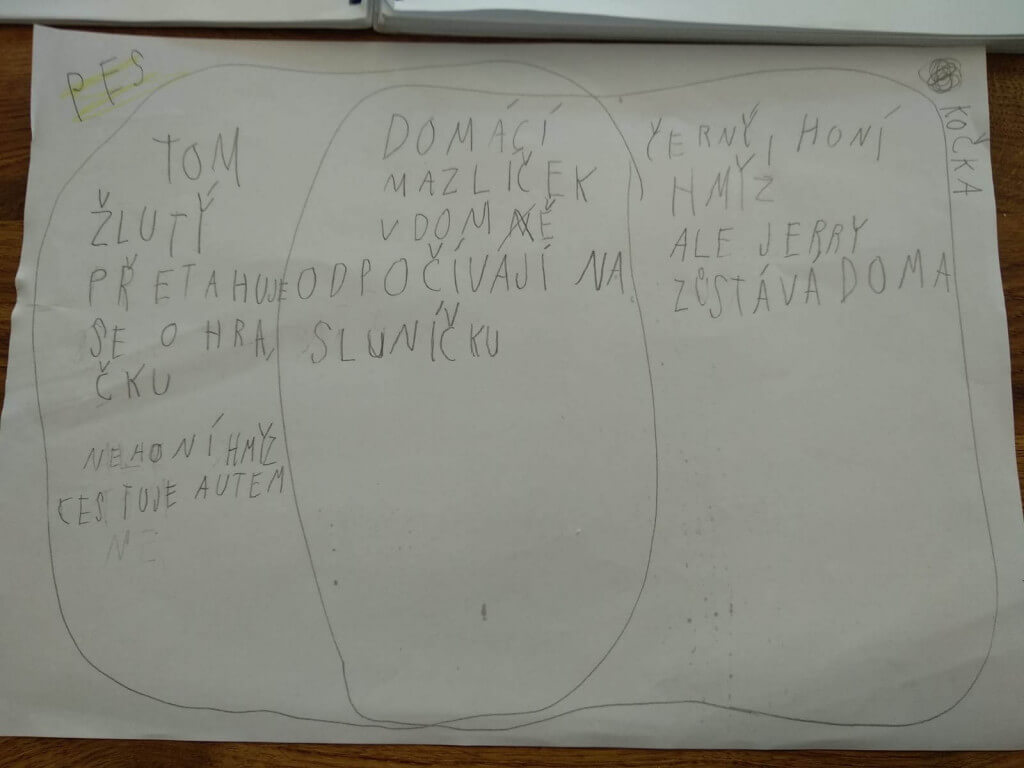 PES
TOM
ŽLUTÝ
PŘETAHUJE
SE O HRA
ČKU
NEHONÍ HMYZ
CESTUJE AUTEM
NE
DOMÁCÍ
MAZLÍČEK
V DOMĚ
ODPOČÍVAJÍ NA
SLUNÍČKU
KOČKA
ČERNÝ, HONÍ
HMYZ
ALE JERRY
ZŮSTÁVÁ DOMA